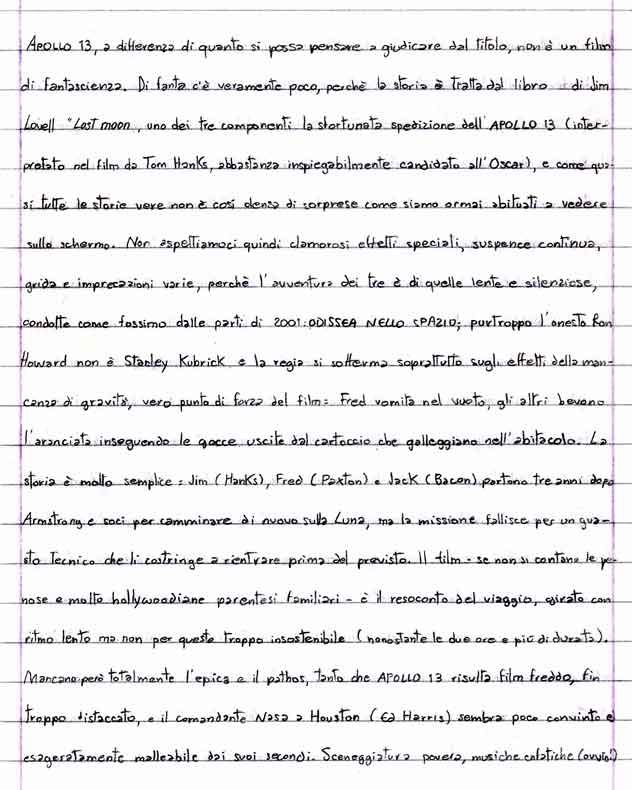 APOLLO 13, a differenza di quanto si possa pensare a giudicare dal titolo, non è un film
di fantascienza. Di fanta c'è veramente poco, perchè la storia è tratta dal libro di Jim
Lovell "Lost moon, uno dei tre componenti la sfortunata spedizione dell'APOLLO 13 (inter-
pretato nel film da Tom Hanks, abbastanza inspiegabilmente candidato all'Oscar), e come qua-
si tutte le storie vere non è così densa di sorprese come siamo ormai abituati a vedere
sullo schermo. Non aspettiamoci quindi clamorosi effetti speciali, suspence continua,
grida e imprecazioni varie, perchè l'avventura dei tre è di quelle lente e silenziose,
condotte come fossimo dalle parti di 2001: ODISSEA NELLO SPAZIO; purtroppo l'onesto Ron
Howard non è Stanley Kubrick e la regia si sofferma soprattutto sugli effetti della man-
canza di gravità, vero punto di forza del film: Fred vomita nel vuoto, gli altri bevono
l'aranciata inseguendo le gocce uscite dal cartoccio che galleggiano nell'abitacolo. La
storia è molto semplice: Jim (Hanks), Fred (Paxton) e Jack (Bacon) partono tre anni dopo
Armstrong e soci per camminare di nuovo sulla Luna, ma la missione fallisce per un gua-
sto tecnico che li costringe a rientrare prima del previsto. Il film - se non si contano le pe-
nose e molto hollywoodiane parentesi familiari - è il resoconto del viaggio, girato con
ritmo lento ma non per questo troppo insostenibile (nonostante le due ore e più di durata).
Mancano però totalmente l'epica e il pathos, tanto che APOLLO 13 risulta film freddo, fin
troppo distaccato, e il comandante Nasa a Houston (Ed Harris) sembra poco convinto e
esageratamente malleabile dai suoi secondi. Sceneggiatura povera, musiche enfatiche (ovvio!)